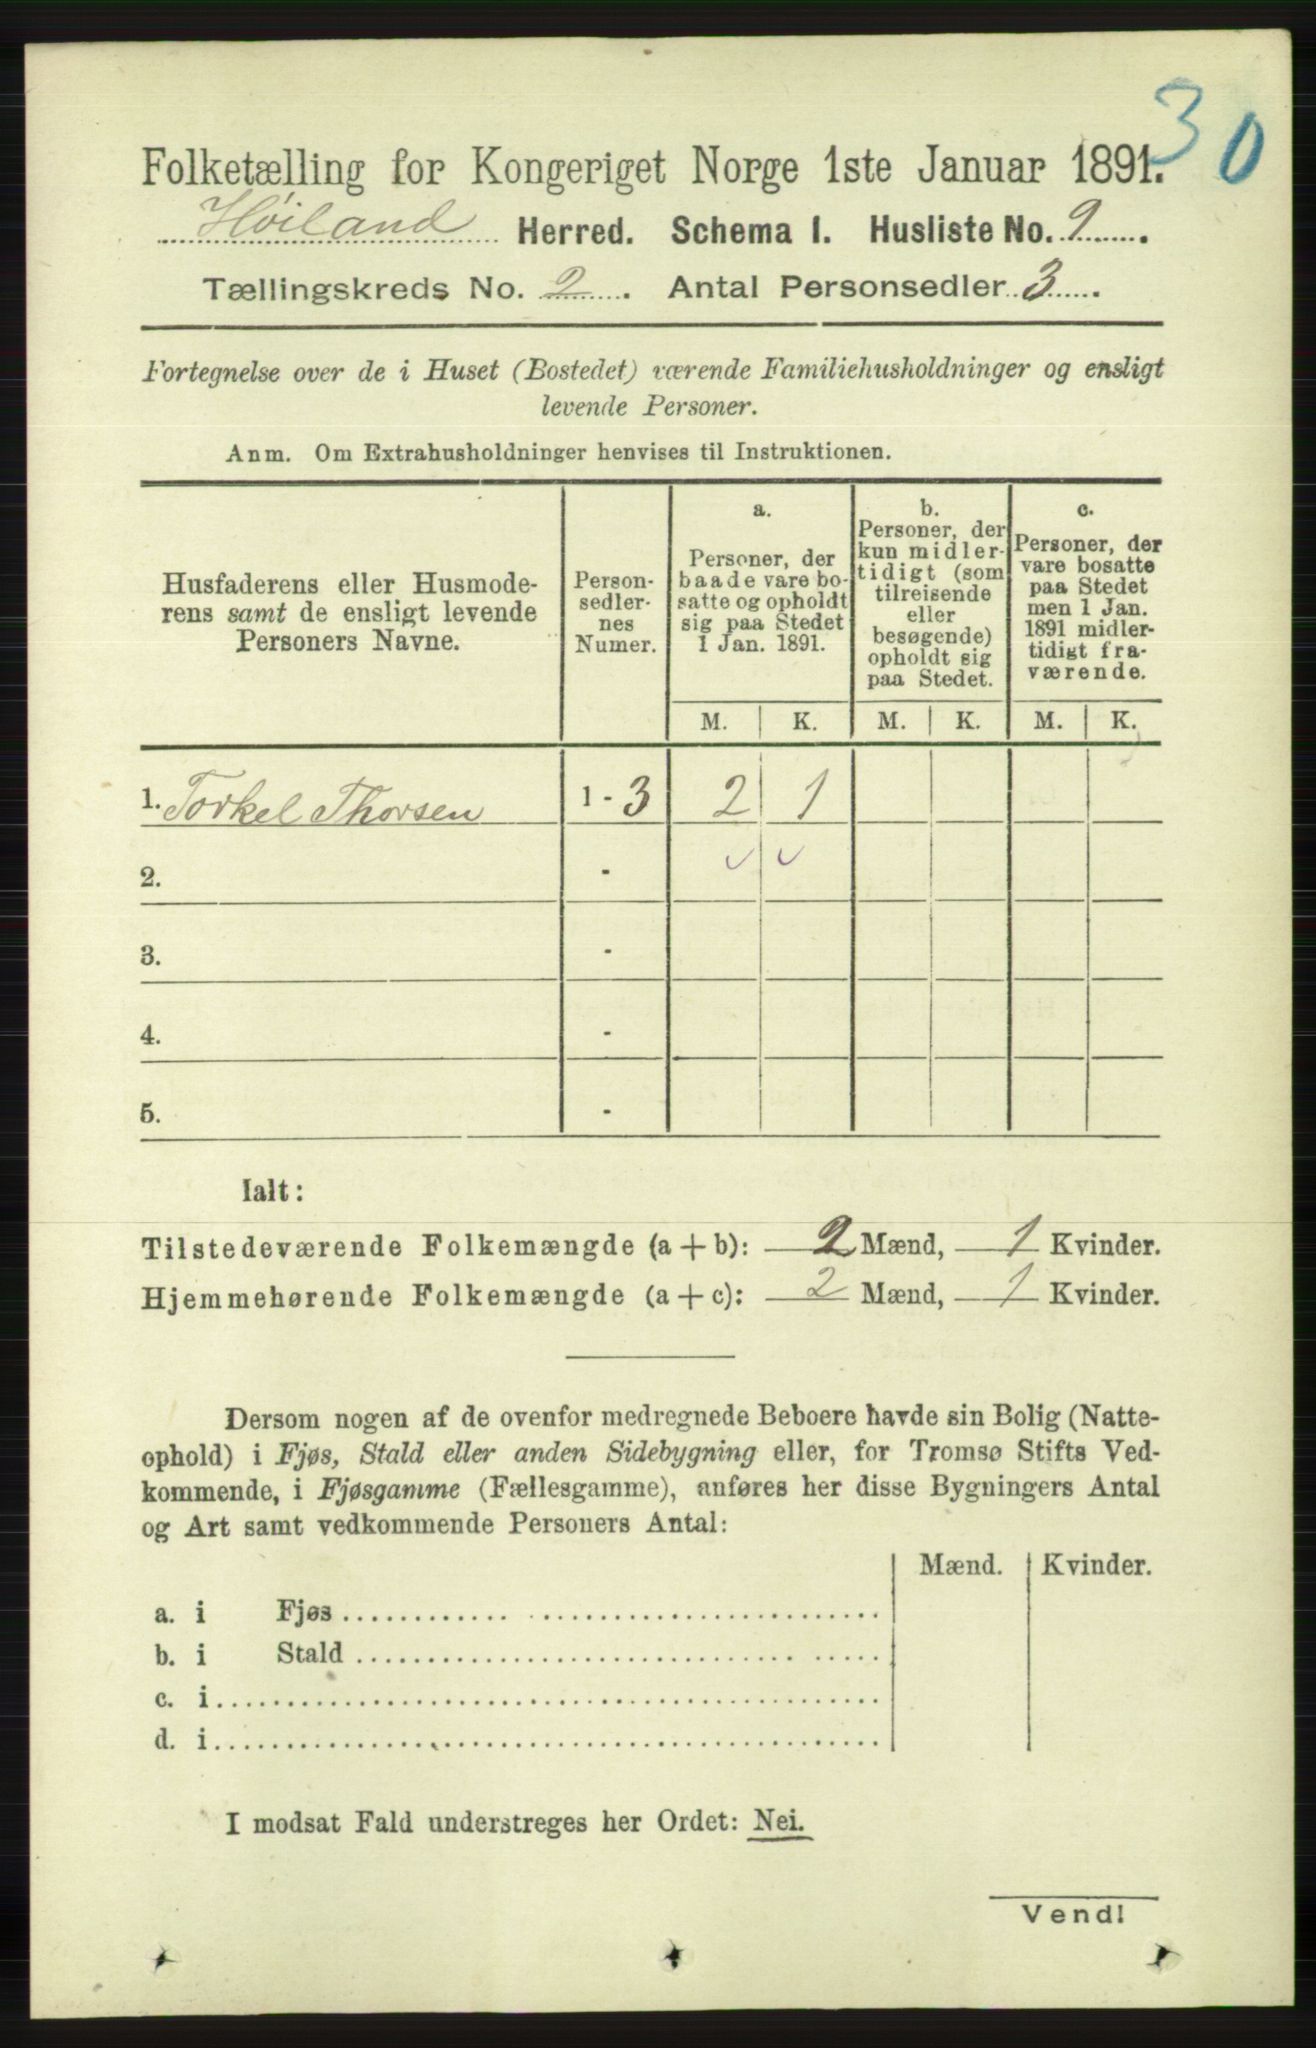 30
Folketælling for Kongeriget Norge 1ste Januar 1891.
Høiland Herred. Schema I. Husliste No. 9.
Tællingskreds No. 2. Antal Personsedler 3.
Fortegnelse over de i Huset (Bostedet) værende Familiehusholdninger og ensligt
levende Personer.
Anm. Om Extrahusholdninger henvises til Instruktionen.
Husfaderens eller Husmode-
rens samt de ensligt levende
Personers Navne.
Person-
sedler-
nes
Numer.
a.
Personer, der
baade vare bo-
satte og opholdt
sig paa Stedet
1 Jan. 1891.
b.
Personer, der
kun midler-
tidigt (som
tilreisende
eller
besøgende)
opholdt sig
paa Stedet.
c.
Personer, der
vare bosatte
paa Stedet
men 1 Jan.
1891 midler-
tidigt fra-
værende.
M. K. M. K. M. K.
1. Torkel Thorsen 1 - 3 2 1
2. -
3. -
4. -
5. -
Ialt:
Tilstedeværende Folkemængde (a + b): 2 Mænd, 1 Kvinder.
Hjemmehørende Folkemængde (a + c): 2 Mænd, 1 Kvinder.
Dersom nogen af de ovenfor medregnede Beboere havde sin Bolig (Natte-
ophold) i Fjøs, Stald eller anden Sidebygning eller, for Tromsø Stifts Ved-
kommende, i Fjøsgamme (Fællesgamme), anføres her disse Bygningers Antal
og Art samt vedkommende Personers Antal:
Mænd. Kvinder.
a. i Fjøs
b. i Stald
c. i
d. i
I modsat Fald understreges her Ordet: Nei.
Vend!